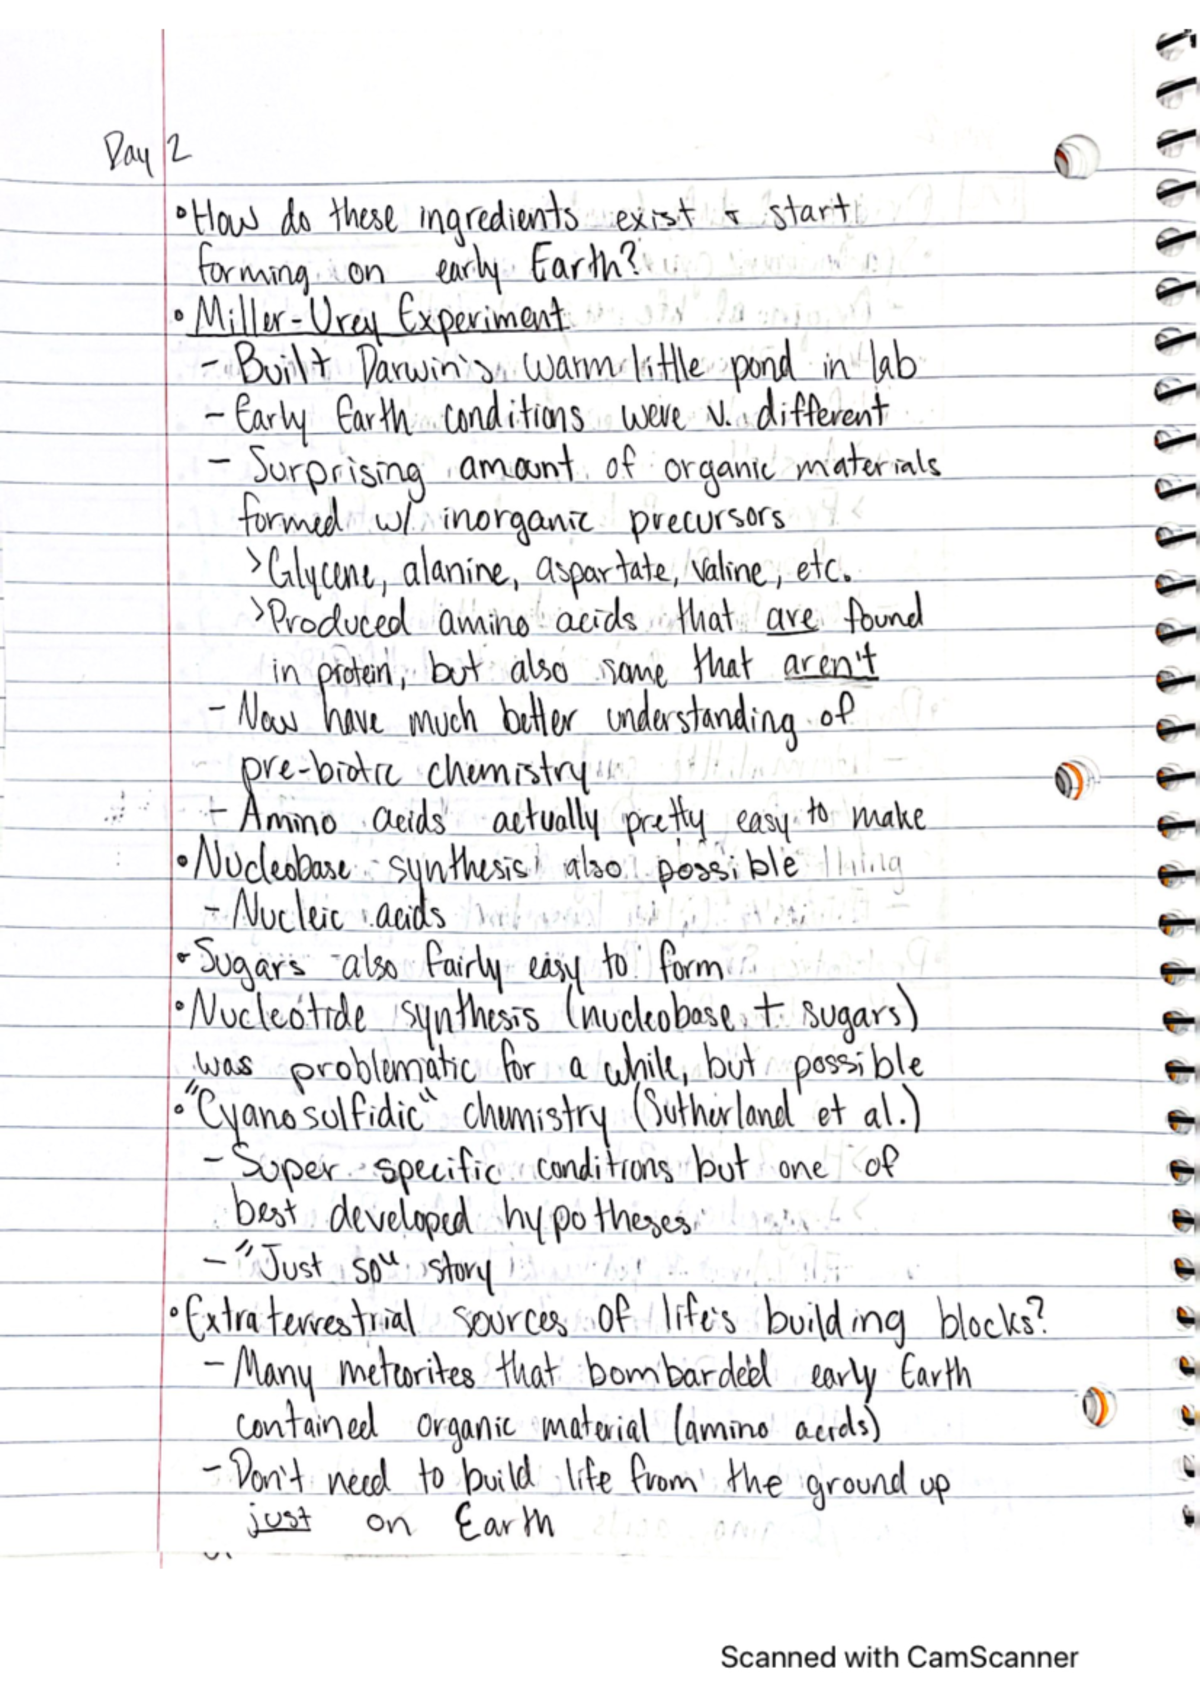 Day 2
• How do these ingredients exist & start
forming on early Earth?
• Miller-Urey Experiment
- Built Darwin's warm little pond in lab
- Early Earth conditions were v. different
- Surprising amount of organic materials
formed w/ inorganic precursors
> Glycene, alanine, aspartate, valine, etc.
> Produced amino acids that are found
in protein, but also some that aren't
- Now have much better understanding of
pre-biotic chemistry
- Amino acids actually pretty easy to make
• Nucleobase synthesis also possible
- Nucleic acids
• Sugars also fairly easy to form
• Nucleotide synthesis (nucleobase + sugars)
was problematic for a while, but possible
• "Cyanosulfidic" chemistry (Sutherland et al.)
- Super specific conditions but one of
best developed hypotheses
- "Just so" story
• Extraterrestrial sources of life's building blocks?
- Many meteorites that bombarded early Earth
contained organic material (amino acids)
- Don't need to build life from the ground up
just on Earth
Scanned with CamScanner